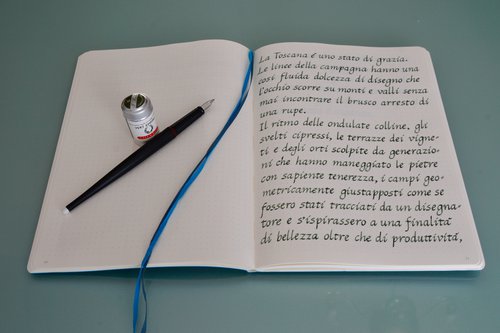 La Toscana é uno stato di grazia.
Le linee della campagna hanno una
cosí fluida dolcezza di disegno che
l'occhio scorre su monti e valli senza
mai incontrare il brusco arresto di
una rupe.
Il ritmo delle ondulate colline, gli
svelti cipressi, le terrazze dei vigne-
ti e degli orti scolpite da generazio-
ni che hanno maneggiato le pietre
con sapiente tenerezza, i campi geo-
metricamente giustapposti come se
fossero stati tracciati da un disegna-
tore e s'ispirassero a una finalitá
di bellezza oltre che di produttivitá,